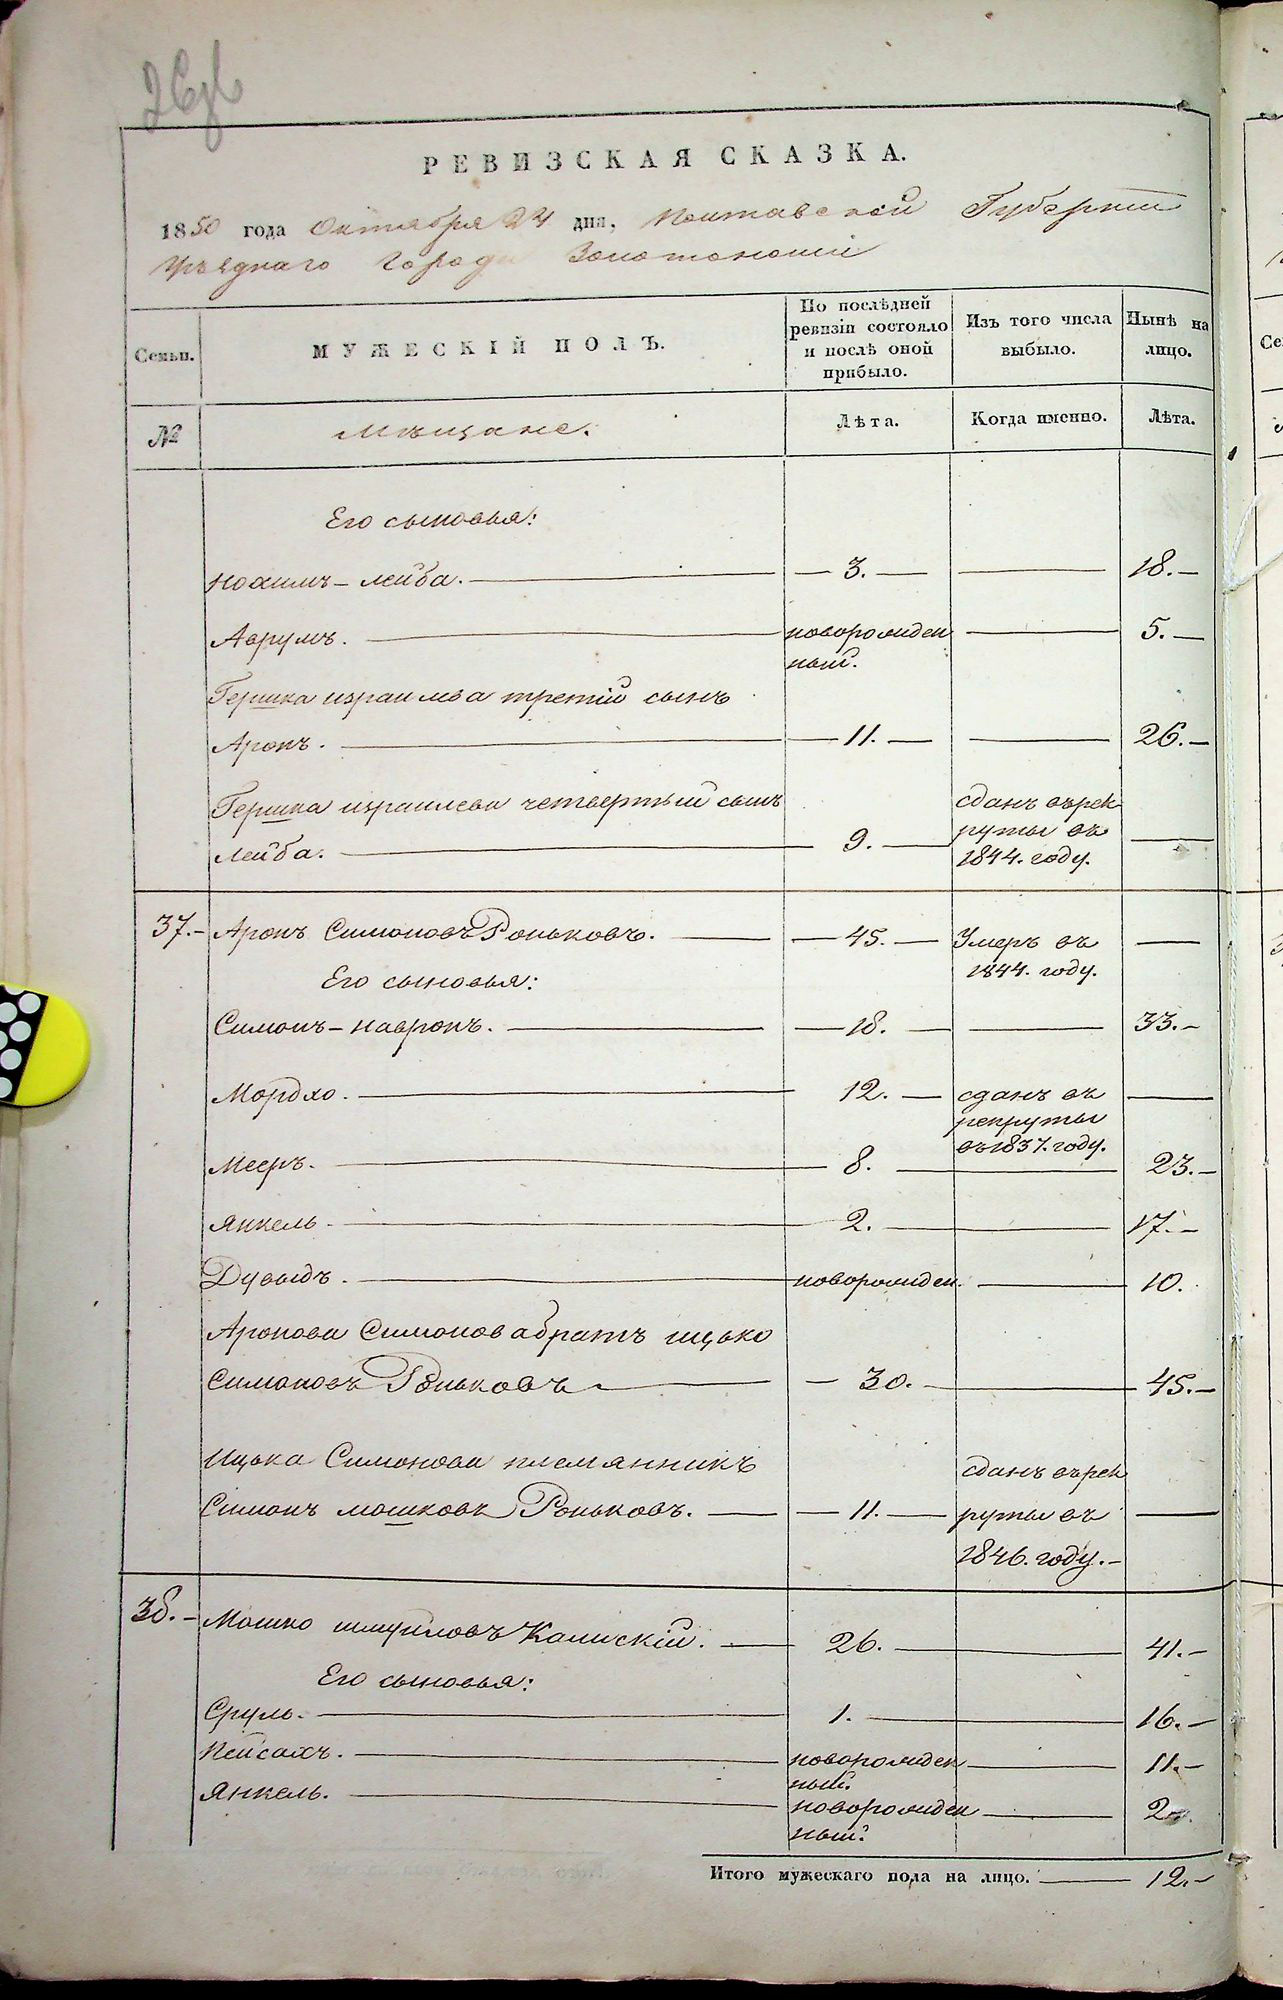 26об
РЕВИЗСКАЯ СКАЗКА.
1850 года Октября 24 дня, Полтавской Губернии
Уѣзднаго Города Золотоноши
Семьи.
МУЖЕСКІЙ ПОЛЪ.
По послѣдней ревизіи состояло и послѣ оной прибыло.
Изъ того числа выбыло.
Нынѣ на лицо.
№
Мѣщане.
Лѣта.
Когда именно.
Лѣта.
Его сыновья:
Нохимъ-лейба. — 3. — — 18. —
Аврумъ. — новорожден — 5. —
ный.
Гершка израилева третій сынъ
Аронъ. — 11. — — 26. —
Гершка израилева четвертый сынъ сданъ въ рек
руты въ
Лейба. — 9. — 1844. году. —
37. — Аронъ Симоновъ Роньковъ. — 45. — Умеръ въ —
1844. году.
Его сыновья:
Симонъ-наѳронъ. — 18. — — 33. —
Мордхо. — 12. — сданъ въ —
рекруты
въ 1837. году.
Мееръ. — 8. — 23. —
Янкель — 2. — 17. —
Дувыдъ. — новорожден. — 10.
Аронова Симонова братъ ицько
Симоновъ Роньковъ — 30. — 45. —
Ицька Симонова племянникъ сданъ въ рек
Симонъ мошковъ Роньковъ. — 11. — руты въ —
1846. году. —
38. — Мошко шмуйловъ Калискій. — 26. — 41. —
Его сыновья:
Сруль. — 1. — 16. —
Пейсахъ. — новорожден — 11. —
ный.
Янкель. — новорожден — 2
ный.
Итого мужескаго пола на лицо. — 12. —